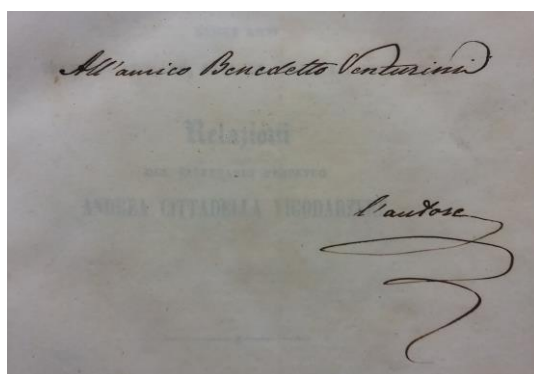 All'amico Benedetto Venturini
Relazioni
ANDREA CITTADELLA VIGODARZERE
l'autore